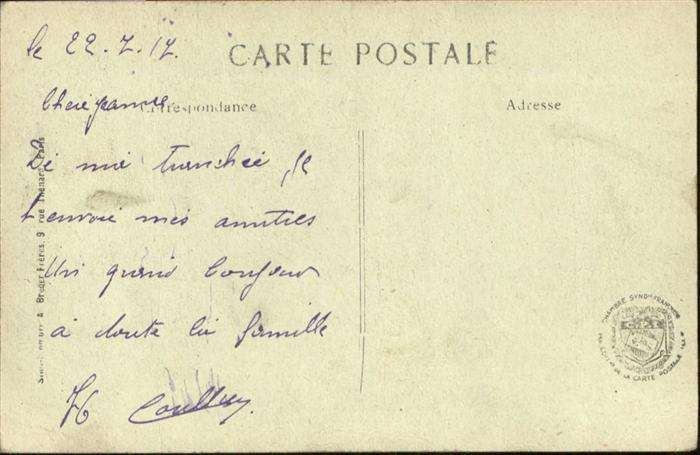 le 22.7.17.
CARTE POSTALE
Correspondance
Adresse
Chère
De ma tranchée je
t'envoie mes amitiés
Un grand bonjour
à toute la famille
H
A Breger Frères, 9 rue Thénard, Paris
CHAMBRE SYNDle FRANÇAISE
DE LA CARTE POSTALE